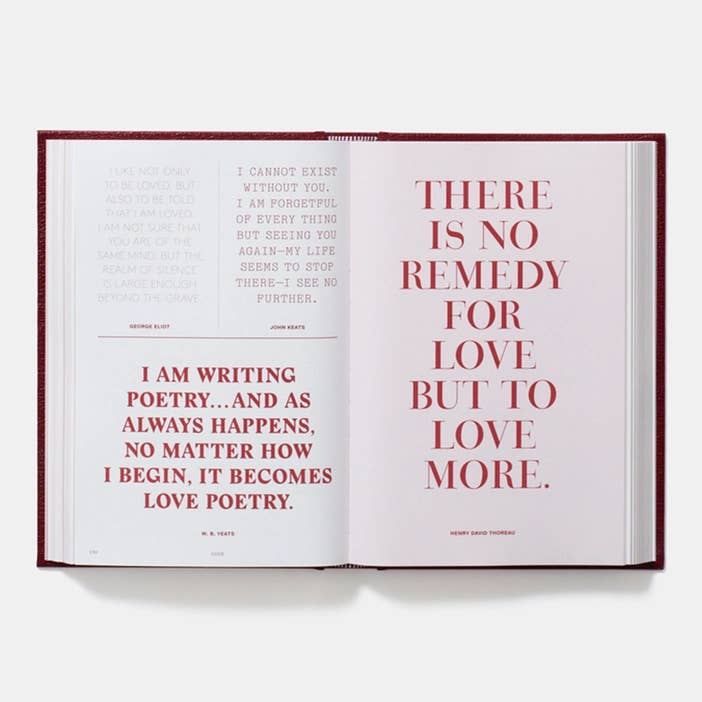 I LIKE NOT ONLY
TO BE LOVED, BUT
ALSO TO BE TOLD
THAT I AM LOVED.
I AM NOT SURE THAT
YOU ARE OF THE
SAME MIND. BUT THE
REALM OF SILENCE
IS LARGE ENOUGH
BEYOND THE GRAVE.
GEORGE ELIOT
I CANNOT EXIST
WITHOUT YOU.
I AM FORGETFUL
OF EVERY THING
BUT SEEING YOU
AGAIN—MY LIFE
SEEMS TO STOP
THERE—I SEE NO
FURTHER.
JOHN KEATS
I AM WRITING
POETRY...AND AS
ALWAYS HAPPENS,
NO MATTER HOW
I BEGIN, IT BECOMES
LOVE POETRY.
W. B. YEATS
LOVE
THERE
IS NO
REMEDY
FOR
LOVE
BUT TO
LOVE
MORE.
HENRY DAVID THOREAU